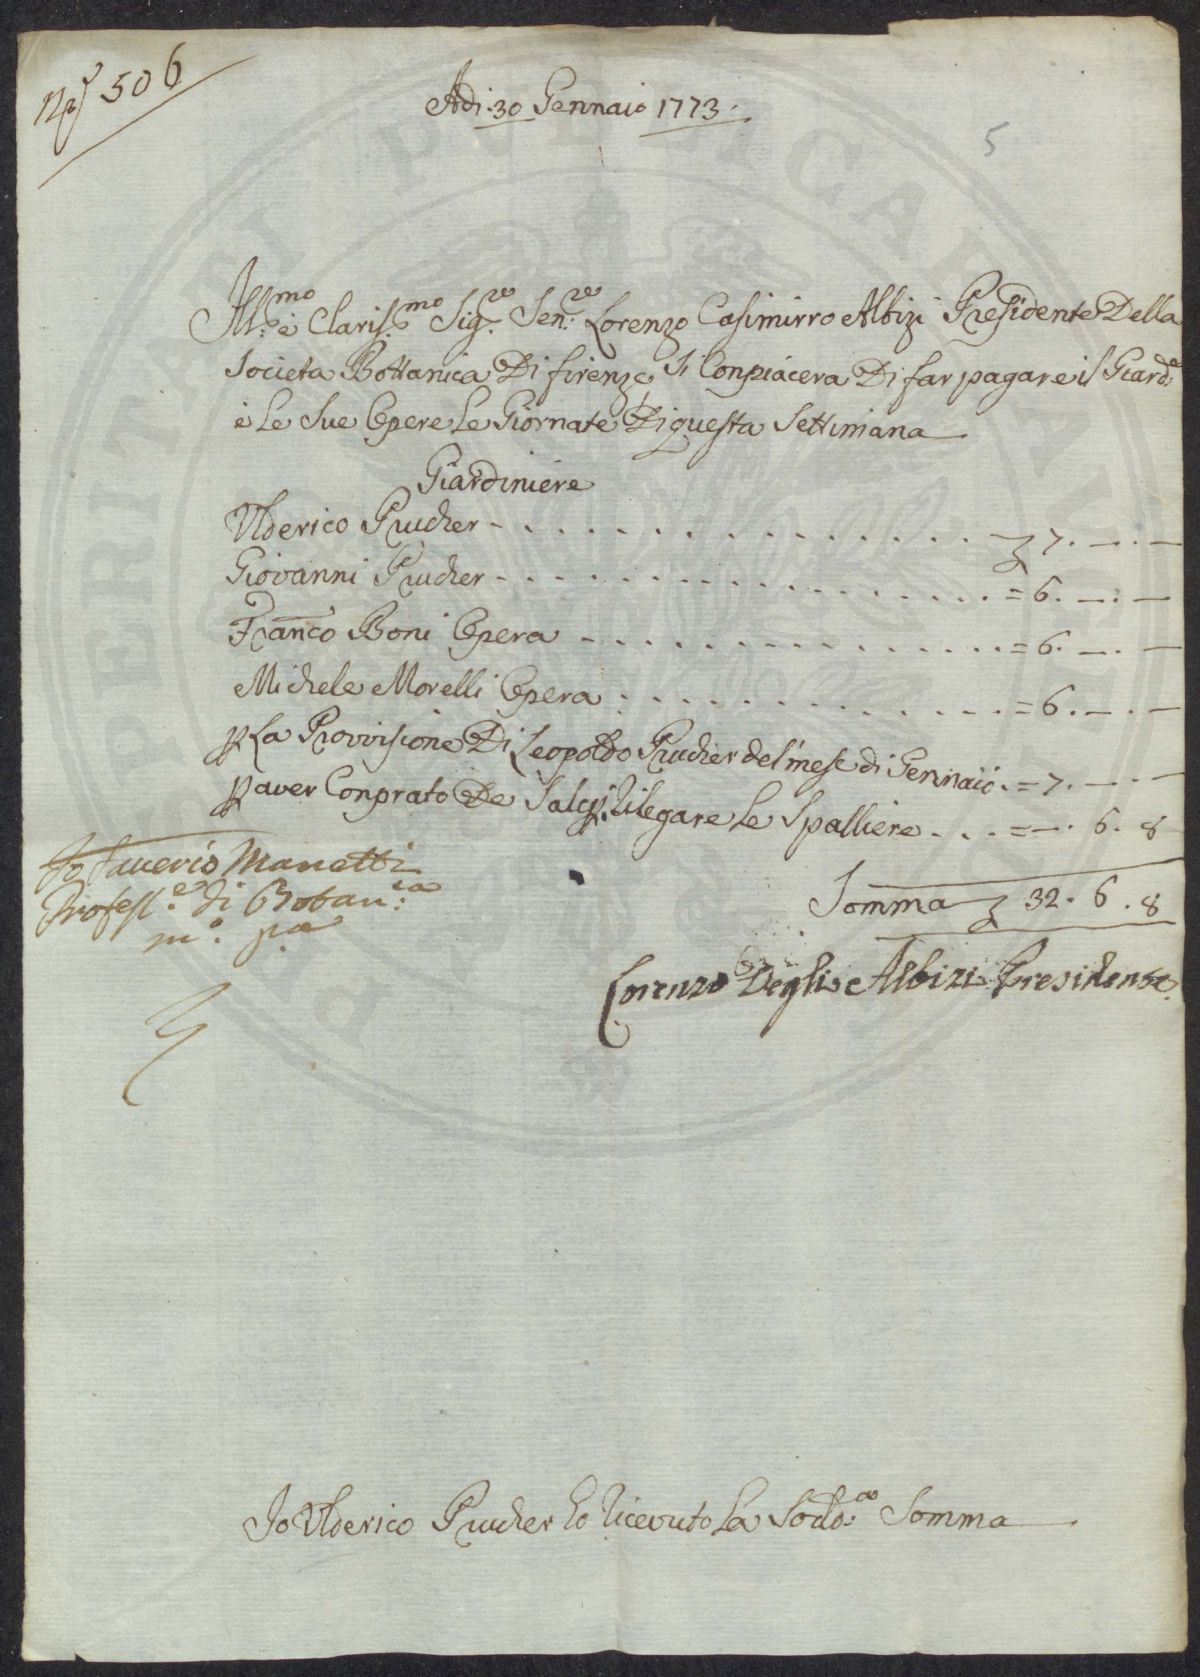 N.º 506
Adi. 30 Gennaio 1773.
5
Ill.mo è Claris.mo Sig.re Sen.re Lorenzo Casimirro Albizi Presidente Della
Societa Bottanica Di firenze Si Conpiacera Di far pagare il Giard.e
è Le Sue Opere Le Giornate Di questa Settimana
Giardiniere
Ulderico Prucher - . . . . . . . . . . . . . . . £ 7. —. —
Giovanni Prucher - . . . . . . . . . . . . . . . = 6. —. —
Franco Boni Opera - . . . . . . . . . . . . . = 6. —. —
Michele Morelli Opera . . . . . . . . . . . . . = 6. —. —
p La Provvisione Di Leopoldo Prucher del mese di Gennaio . = 7. —. —
p aver Conprato De Salci p Rilegare Le Spalliere . . . = —. 6. 8
Somma £ 32. 6. 8
Io Saverio Manetti
Profess.e di Botan.ca
m.o p.a
Lorenzo Degli Albizi Presidente
Io Ulderico Prucher ho Ricevuto La Sodd.a Somma
PERITATI PVBLICAE